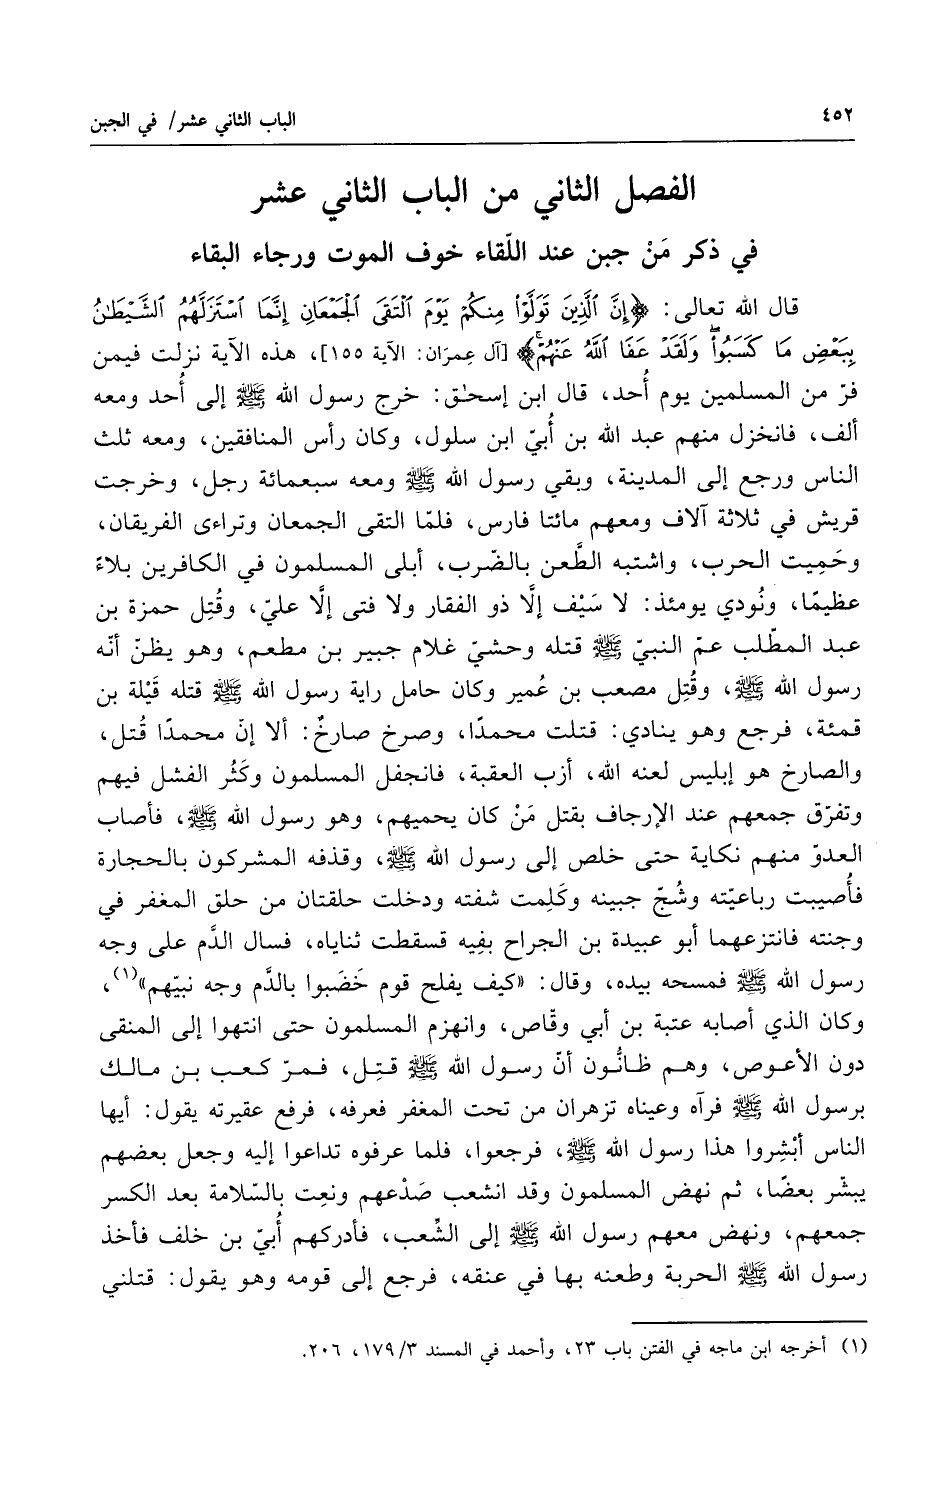 ٤٥٢
الباب الثاني عشر/ في الجبن
الفصل الثاني من الباب الثاني عشر
في ذكر مَنْ جبن عند اللّقاء خوف الموت ورجاء البقاء
قال الله تعالى: ﴿إِنَّ ٱلَّذِينَ تَوَلَّوْا۟ مِنكُمْ يَوْمَ ٱلْتَقَى ٱلْجَمْعَانِ إِنَّمَا ٱسْتَزَلَّهُمُ ٱلشَّيْطَٰنُ
بِبَعْضِ مَا كَسَبُوا۟ۖ وَلَقَدْ عَفَا ٱللَّهُ عَنْهُمْۚ﴾ [آل عِمرَان: الآية ١٥٥]، هذه الآية نزلت فيمن
فرّ من المسلمين يوم أُحد، قال ابن إسحٰق: خرج رسول الله ﷺ إلى أُحد ومعه
ألف، فانخزل منهم عبد الله بن أُبيّ ابن سلول، وكان رأس المنافقين، ومعه ثلث
الناس ورجع إلى المدينة، وبقي رسول الله ﷺ ومعه سبعمائة رجل، وخرجت
قريش في ثلاثة آلاف ومعهم مائتا فارس، فلمّا التقى الجمعان وتراءى الفريقان،
وحَمِيت الحرب، واشتبه الطَّعن بالضّرب، أبلى المسلمون في الكافرين بلاءً
عظيمًا، ونُودي يومئذ: لا سَيْف إلَّا ذو الفقار ولا فتى إلَّا عليّ، وقُتِل حمزة بن
عبد المطّلب عمّ النبيّ ﷺ قتله وحشيّ غلام جبير بن مطعم، وهو يظنّ أنّه
رسول الله ﷺ، وقُتِل مصعب بن عُمير وكان حامل راية رسول الله ﷺ قتله قَيْلة بن
قمئة، فرجع وهو ينادي: قتلت محمدًا، وصرخ صارخٌ: ألا إنّ محمدًا قُتل،
والصارخ هو إبليس لعنه الله، أزب العقبة، فانجفل المسلمون وكَثُر الفشل فيهم
وتفرّق جمعهم عند الإرجاف بقتل مَنْ كان يحميهم، وهو رسول الله ﷺ، فأصاب
العدوّ منهم نكاية حتى خلص إلى رسول الله ﷺ، وقذفه المشركون بالحجارة
فأُصيبت رباعيّته وشُجّ جبينه وكَلِمت شفته ودخلت حلقتان من حلق المغفر في
وجنته فانتزعهما أبو عبيدة بن الجراح بفِيه فسقطت ثناياه، فسال الدَّم على وجه
رسول الله ﷺ فمسحه بيده، وقال: «كيف يفلح قوم خَضَبوا بالدَّم وجه نبيّهم»(١)،
وكان الذي أصابه عتبة بن أبي وقّاص، وانهزم المسلمون حتى انتهوا إلى المنقى
دون الأعوص، وهم ظانُّون أنّ رسول الله ﷺ قتِل، فمرّ كعب بن مالك
برسول الله ﷺ فرآه وعيناه تزهران من تحت المغفر فعرفه، فرفع عقيرته يقول: أيها
الناس أبْشِروا هذا رسول الله ﷺ، فرجعوا، فلما عرفوه تداعوا إليه وجعل بعضهم
يبشّر بعضًا، ثم نهض المسلمون وقد انشعب صَدْعهم ونعِت بالسّلامة بعد الكسر
جمعهم، ونهض معهم رسول الله ﷺ إلى الشِّعب، فأدركهم أُبيّ بن خلف فأخذ
رسول الله ﷺ الحربة وطعنه بها في عنقه، فرجع إلى قومه وهو يقول: قتلني
(١) أخرجه ابن ماجه في الفتن باب ٢٣، وأحمد في المسند ١٧٩/٣، ٢٠٦.